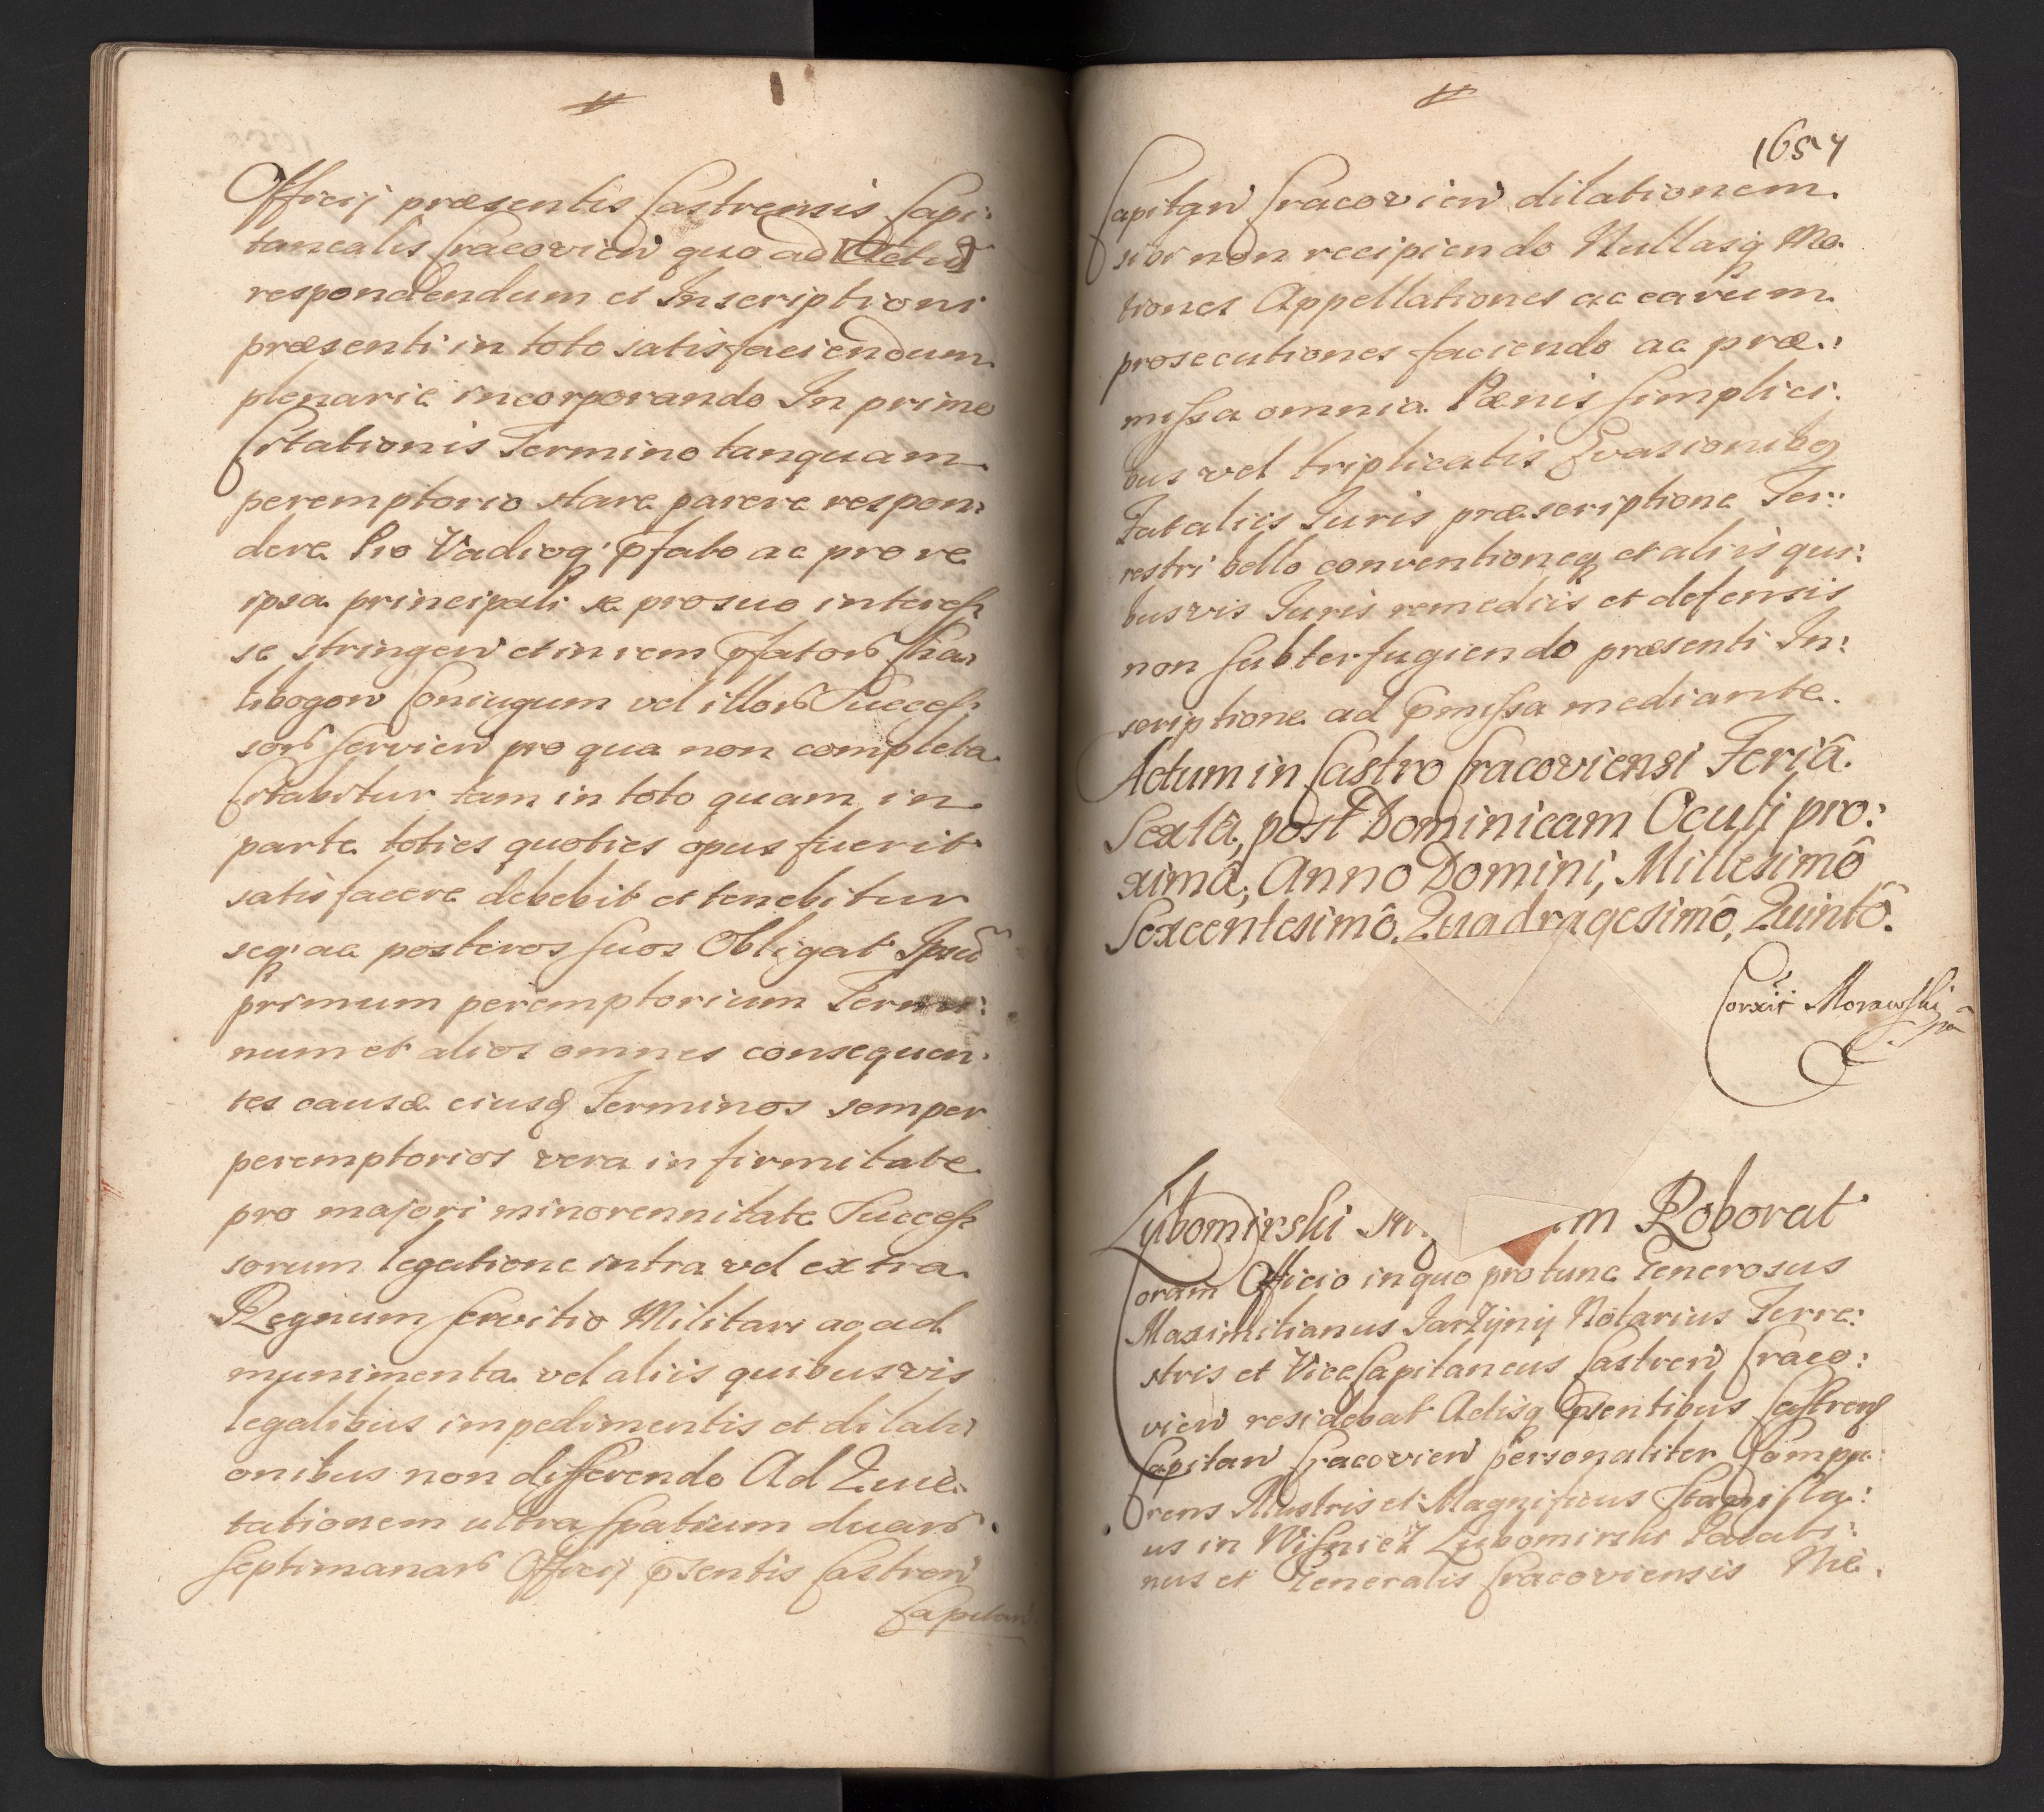 Officij præsentis Castrensis Capi:
tanealis Cracovien quo ad Actu
respondendum et Inscriptioni
præsenti in toto satisfaciendum
plenarie incorporando In primo
Citationis Termino tanquam
peremptorio stare parere respon:
dere Pro Vadioq pfato ac pro re
ipsa principali se pro suo interess
se stringen et in rem pfator
Coniugum vel illor Success
sor servien pro qua non completa
Citabitur tam in toto quam in
parte toties quoties opus fuerit
satisfacere debebit et tenebitur
seq ac posteros suos Obligat Ipsū
primum peremptorium Termi:
num et alios omnes consequen:
tes causæ eiusq Terminos semper
peremptorios vera infirmitate
pro majori minorennitate Success
sorum legatione intra vel extra
Regnum servitio Militari ac ad
munimenta vel aliis quibusvis
legalibus impedimentis et dilati
onibus non differendo Ad Quie:
tationem ultra spatium duar
septimanar Officij psentis Castren
Capitan
1657
Capitan Cracovien dilationem
sivi non recipiendo Nullasq Mo:
tiones Appellationes ac earum
prosecutiones faciendo ac præ:
missa omnia Pœnis simplici:
bus vel triplicatis Evasionibq
Fataliis Juris præscriptione Ter:
restri bello conventioneq et aliis qui:
busvis Juris remediis et defensis
non subterfugiendo præsenti In:
scriptione ad pmissa mediante.
Actum in Castro Cracoviensi Feriâ
Sextâ, post Dominicam Oculi pro:
ximâ, Anno Domini, Millesimô
Sexcentesimô, Quadragesimô, Quintô.
Corxit Morawski
Lubomirski In m Roborat
Coram Officio in quo pro tunc Generosus
Maximilianus Jarzyny Notarius Terre:
stris et Vice Capitaneus Castren Craco:
vien residebat Actisq psentibus Castrens
Capitan Cracovien personaliter Compa:
rens Illustris et Magnificus Stanisla:
us in Wisnicz Lubomirski Palati:
nus et Generalis Cracoviensis Nie: